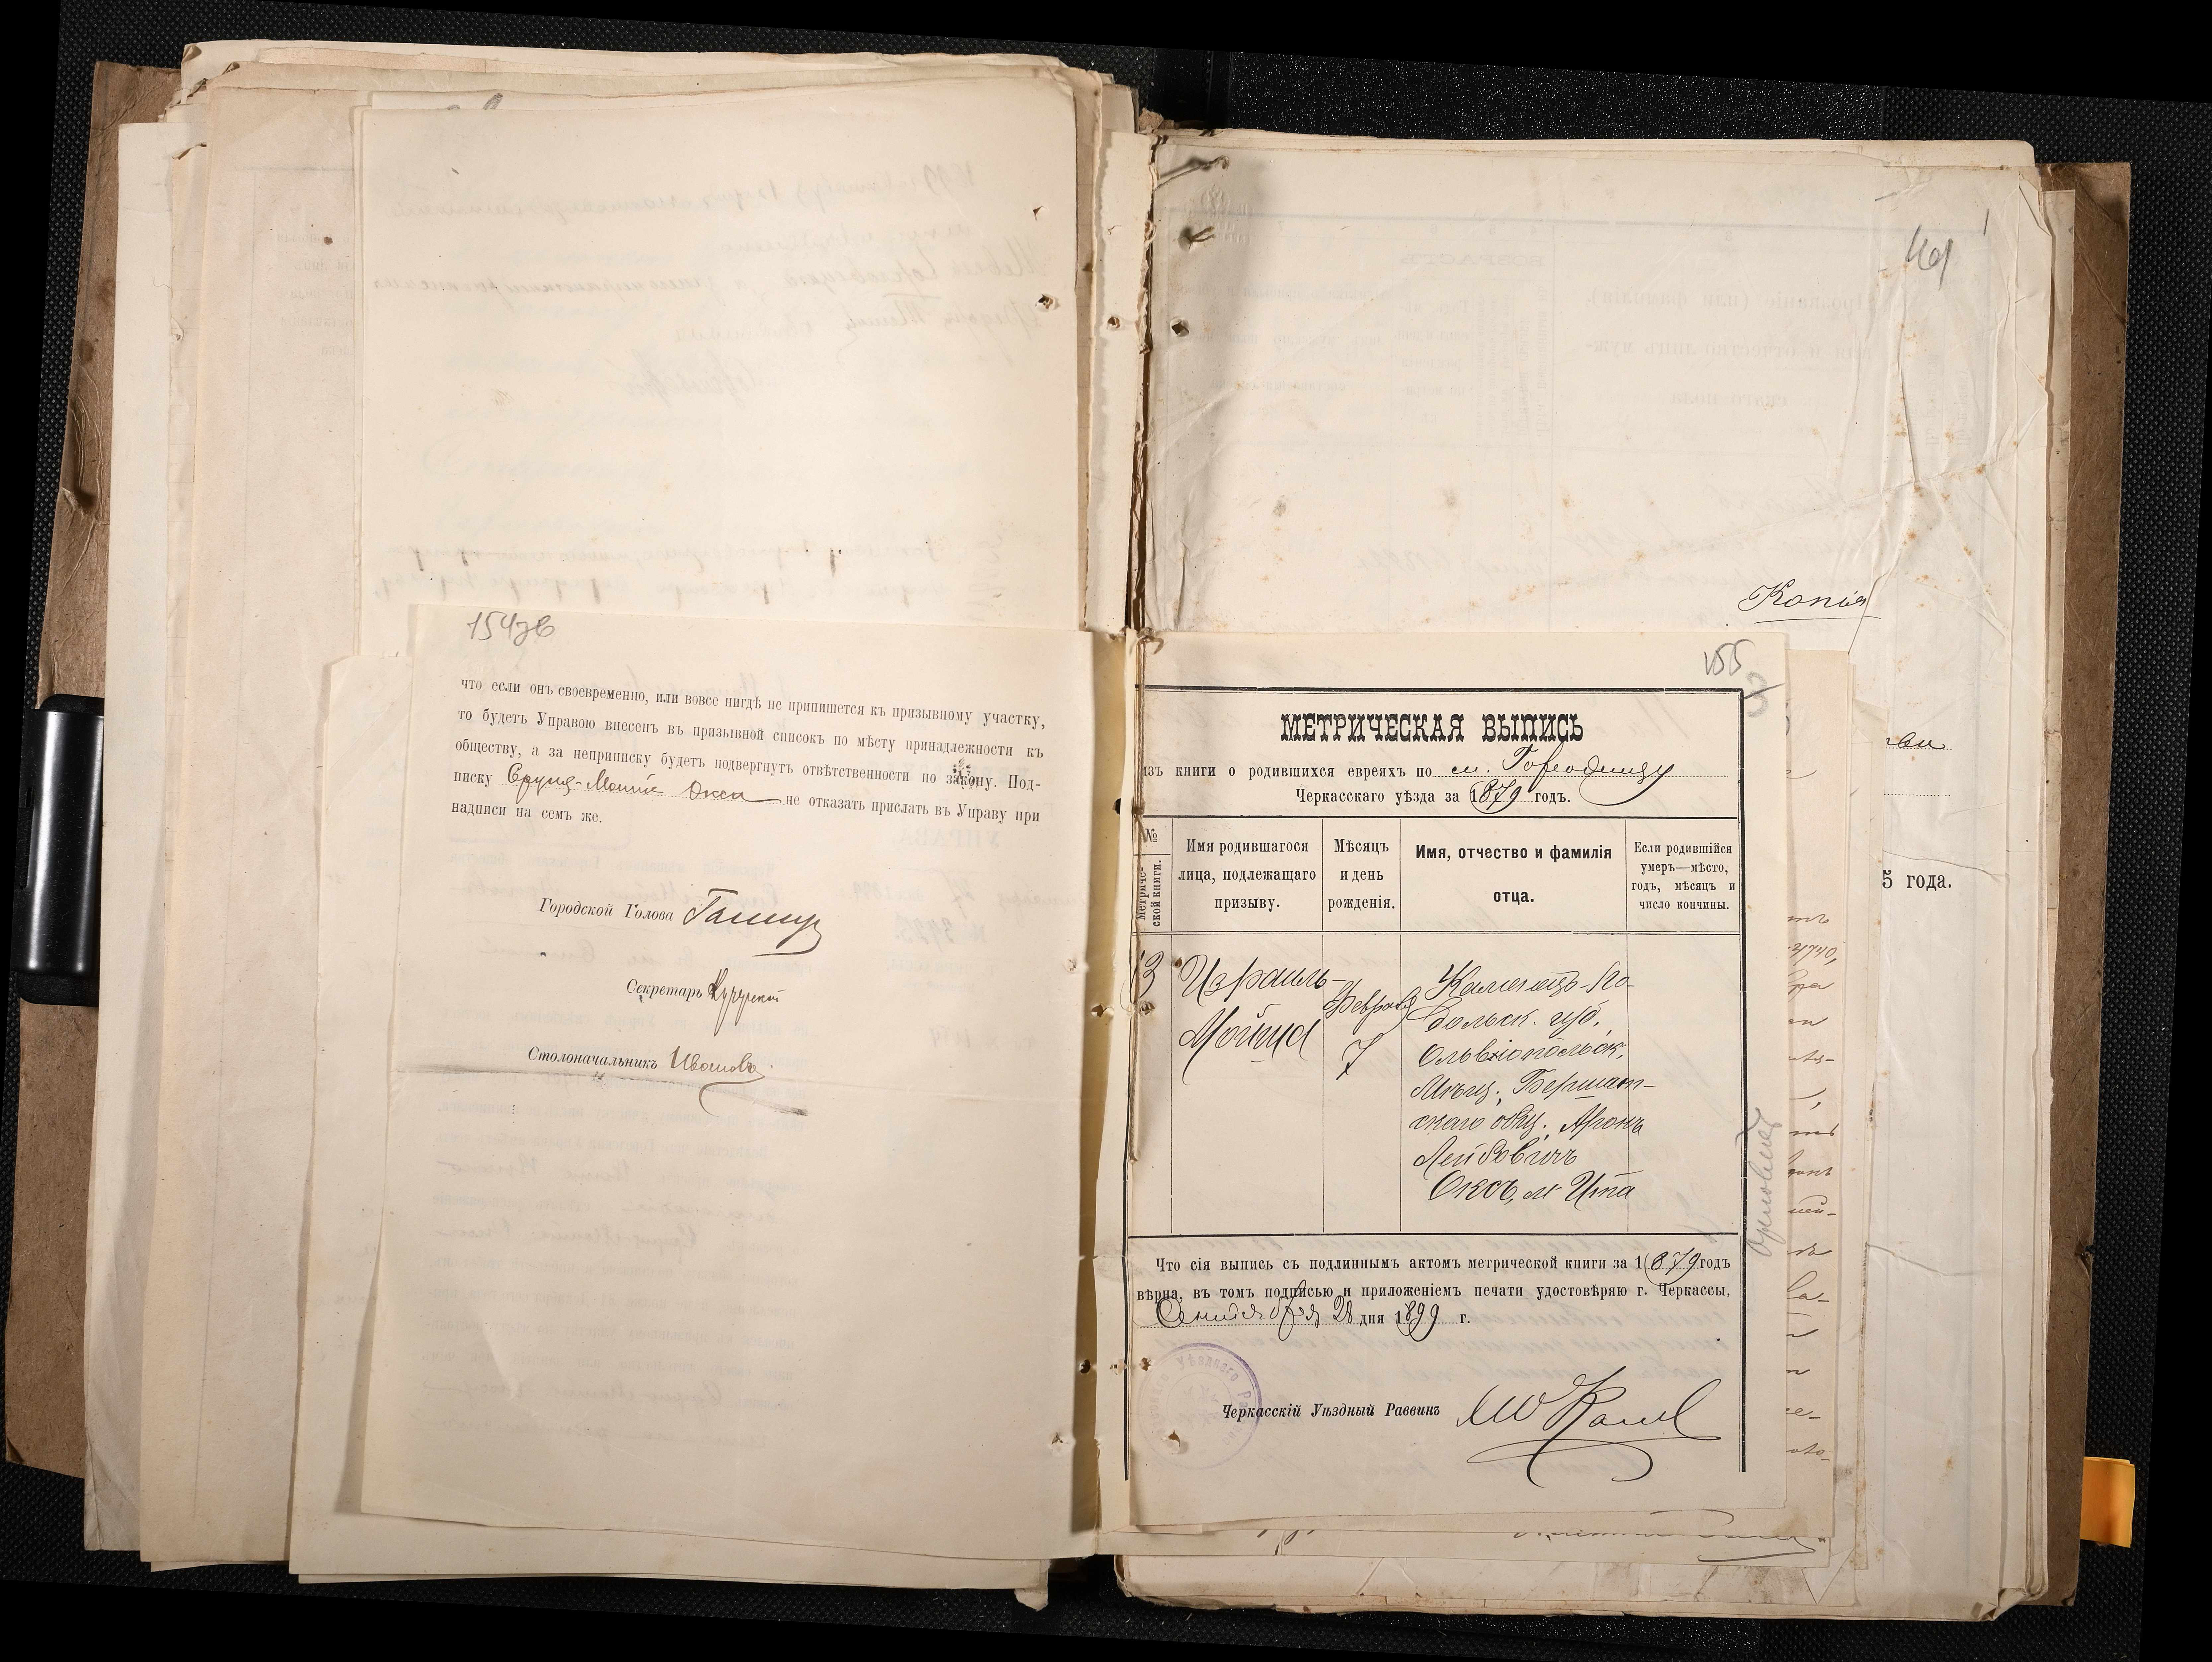 154об
что если онъ своевременно, или вовсе нигдѣ не припишется къ призывному участку,
то будетъ Управою внесенъ въ призывной списокъ по мѣсту принадлежности къ
обществу, а за неприписку будетъ подвергнутъ отвѣтственности по закону. Под-
писку Сруля-Мошке Окса не отказать прислать въ Управу при
надписи на семъ же.
Городской Голова
Секретарь
Столоначальникъ Ивановъ
Копія
155
МЕТРИЧЕСКАЯ ВЫПИСЬ
изъ книги о родившихся евреяхъ по м. Городищу
Черкасскаго уѣзда за 1879 годъ.
№ метриче-
ской книги.
Имя родившагося
лица, подлежащаго
призыву.
Мѣсяцъ
и день
рожденія.
Имя, отчество и фамилія
отца.
Если родившійся
умеръ—мѣсто,
годъ, мѣсяцъ и
число кончины.
13
Израиль-
Мойша
Февраля
7
Каменецъ-По-
дольск. губ.
Ольвіопольск.
Мѣщ. Бершат-
скаго общ. Аронъ
Лейбовичъ
Оксъ, м. Ита
Что сія выпись съ подлиннымъ актомъ метрической книги за 1879 годъ
вѣрна, въ томъ подписью и приложеніемъ печати удостовѣряю г. Черкассы,
Сентября 28 дня 1899 г.
Черкасскій Уѣздный Раввинъ
5 года.